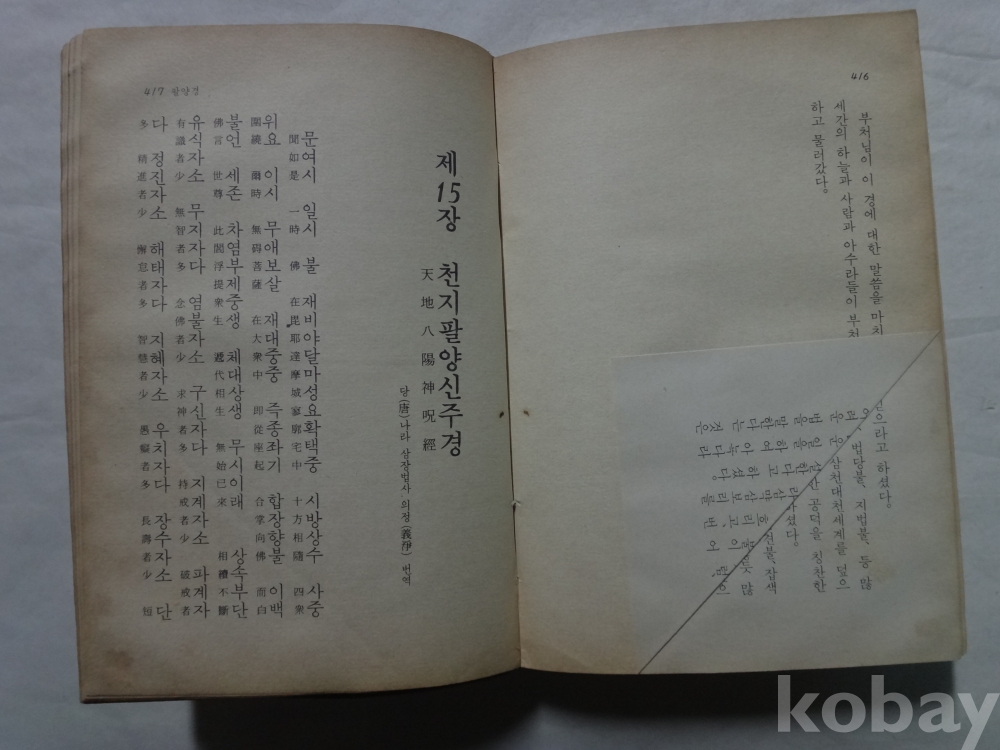 416
부처님이 이 경에 대한 말씀을 마치
세간의 하늘과 사람과 아수라들이 부처
하고 물러갔다.
믿으라고 하셨다.
법당불, 지법불, 등 많
삼천대천세계를 덮으
공덕을 칭찬한
417 팔양경
제 15장 천지팔양신주경
天地八陽神呪經
당(唐)나라 삼장법사 의정(義淨) 번역
문여시 일시 불 재비야달마성요확택중 시방상수 사중
聞如是 一時 佛 在毘耶達摩城寥廓宅中 十方相隨 四衆
위요 이시 무애보살 재대중중 즉종좌기 합장향불 이백
圍繞 爾時 無碍菩薩 在大衆中 即從座起 合掌向佛 而白
불언 세존 차염부제중생 체대상생 무시이래 상속부단
佛言 世尊 此閻浮提衆生 遞代相生 無始已來 相續不斷
유식자소 무지자다 염불자소 구신자다 지계자소 파계자
有識者少 無智者多 念佛者少 求神者多 持戒者少 破戒者
다 정진자소 해태자다 지혜자소 우치자다 장수자소 단
多 精進者少 懈怠者多 智慧者少 愚癡者多 長壽者少 短
kobay